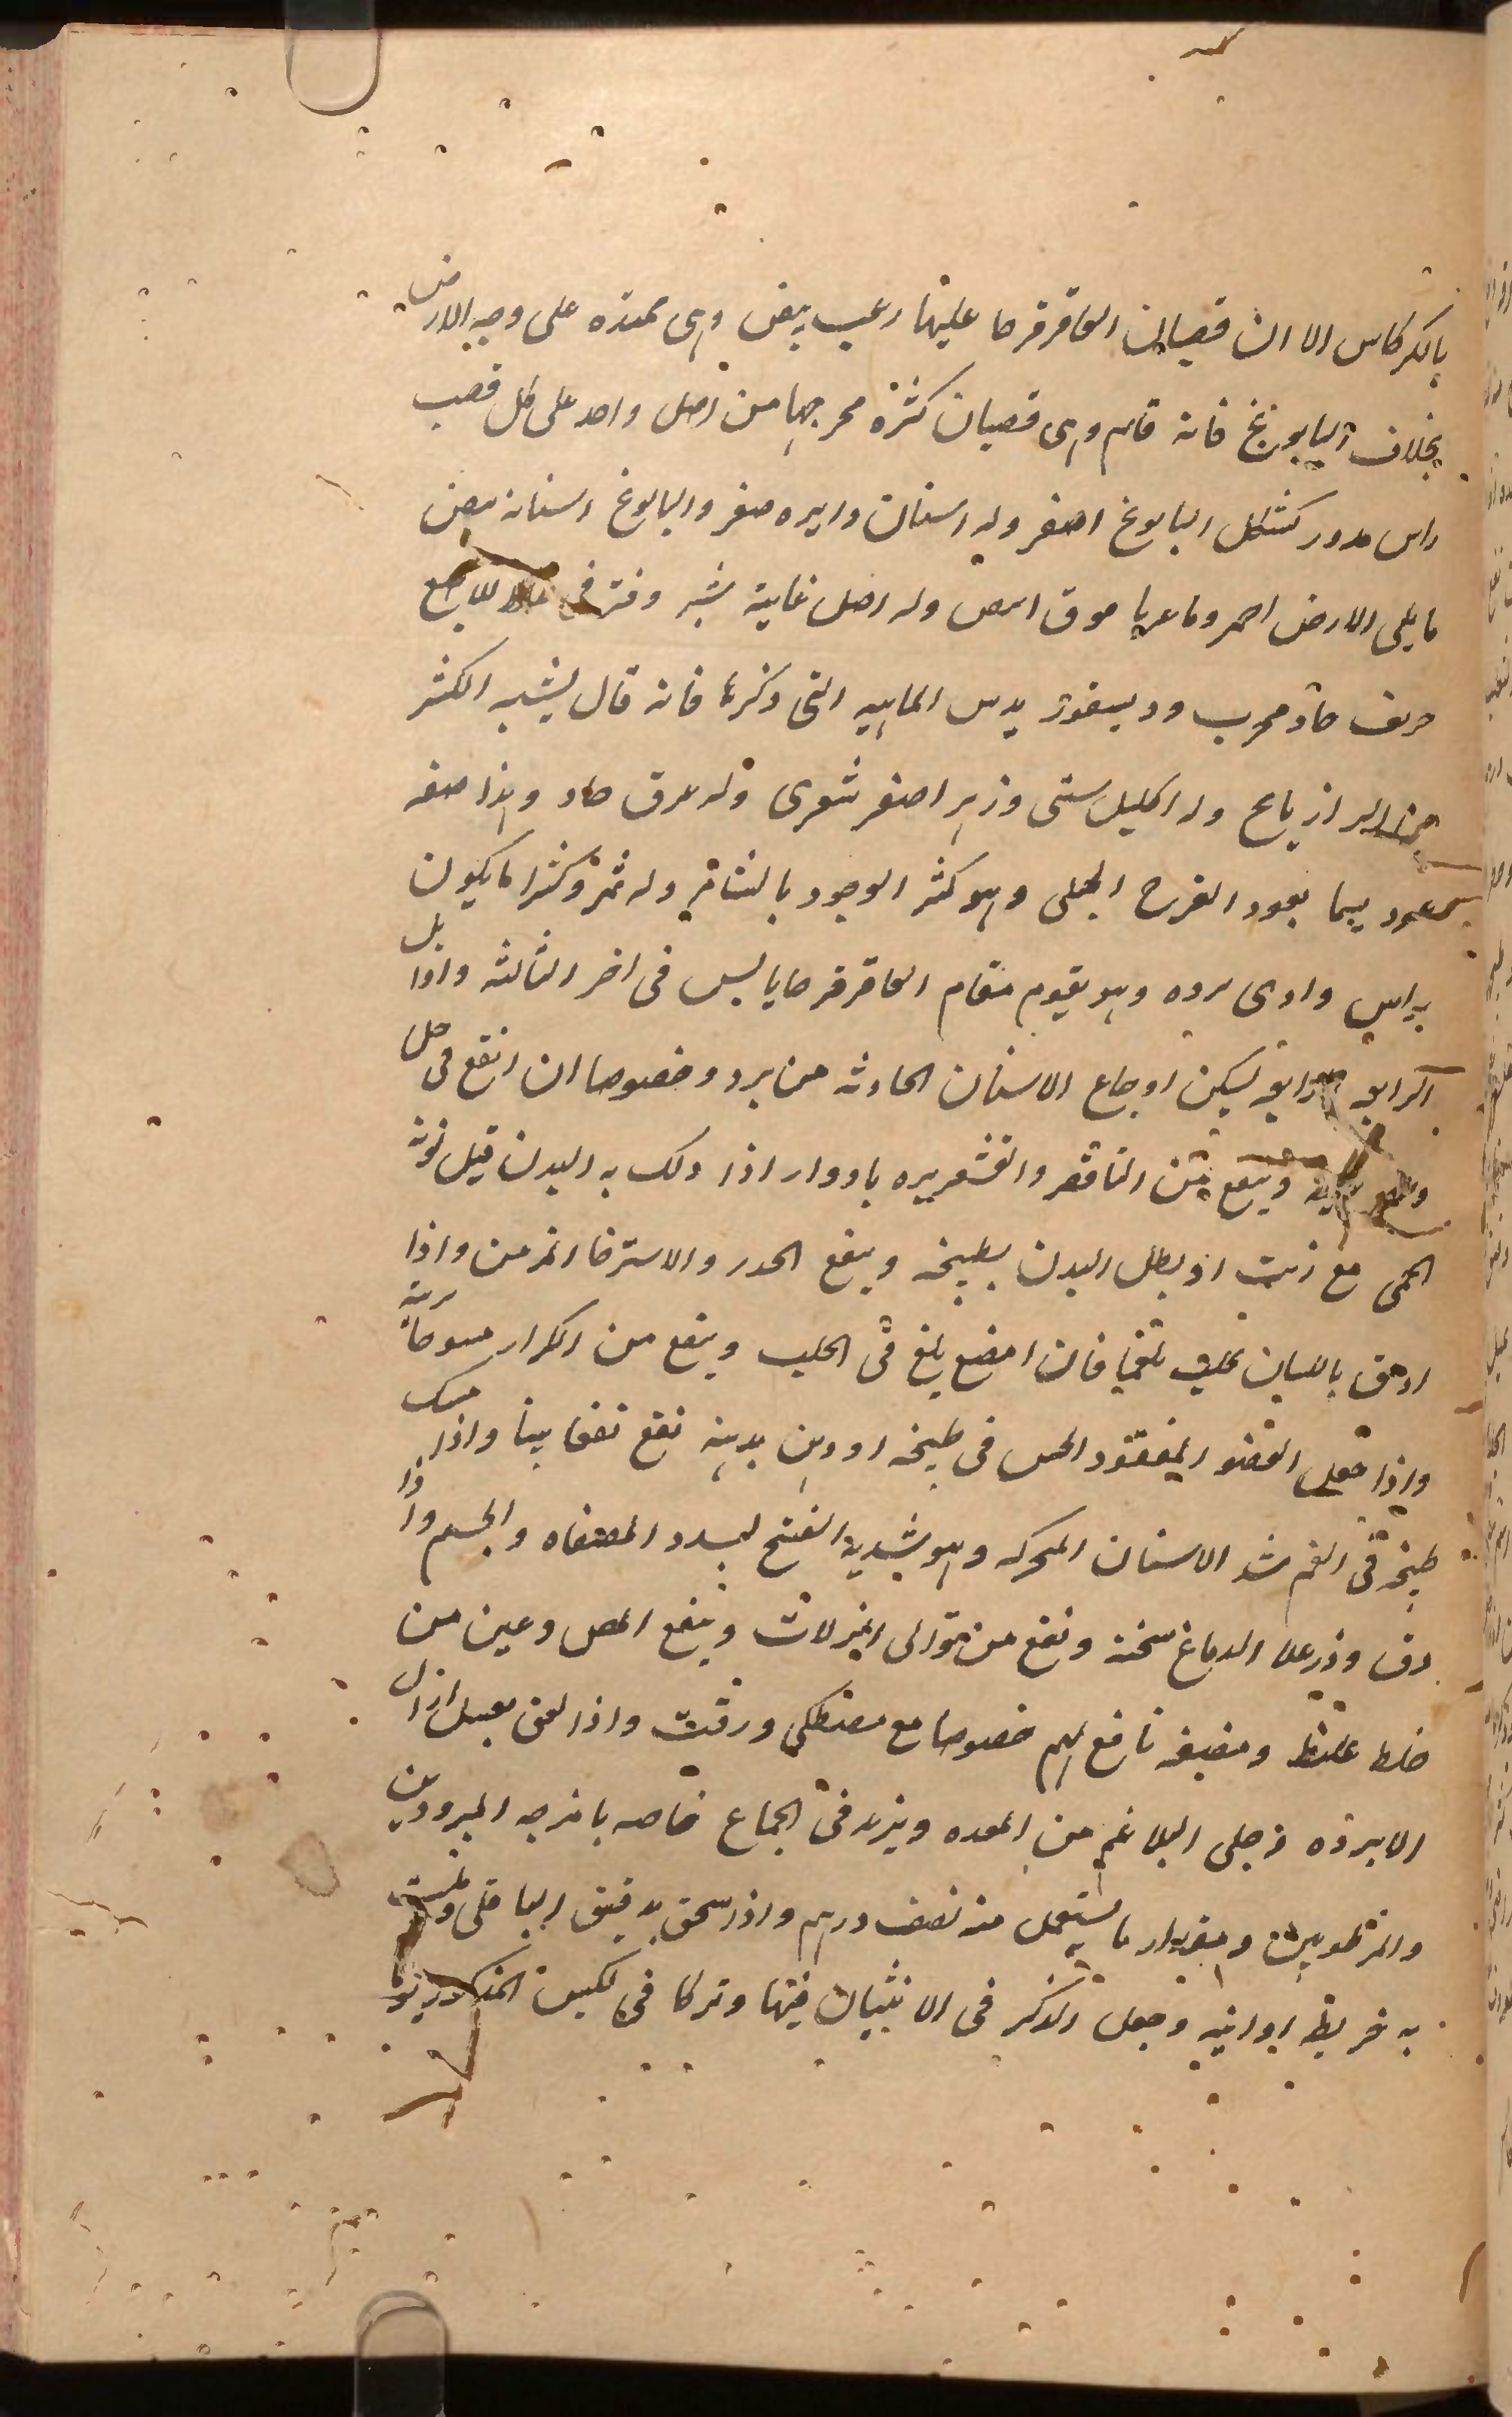 بالكركاس الا ان قضبان العاقرقرحا عليها زغب بيض وهى ممتده على وجه الارض
بخلاف البابونج فانه قايم وهى قضبان كثيرة مخرجها من اصل واحد على كل قضيب
راس مدور كشكل البابونج اصفر وله اسنان دايره صفر والبابونج اسنانه بيض
ما يلى الارض احمر وما فوق ابيض وله اصل غاية شبر وفتر فى الاصبع
حريف حاد محرب وديسقوريدس الماهيه التى ذكرها فانه قال يشبه الكثير
من الرازيانج وله اكليل شبتى وزهر اصفر شعرى وله عرق حاد وهذا صفه
بعود القرح الجبلى وهو كثير الوجود بالشام وله ثمر وكثيرا ما يكون
براس وادى برده وهو يقوم مقام العاقرقرحا يابس فى اخر الثالثه واوا
يل
الرابعه يسكن اوجاع الاسنان الحادثه من برد وخصوصا ان انقع فى خل
وينفع من النافض والقشعريره بادوار اذا دلك به البدن قبل نوبة
الحمى مع زيت او بطل البدن بطبيخه وينفع الخدر والاسترخا المزمن واذا
ادهن باللبان بلغميا فان امضغ بلغ فى الحلب وينفع من الكزاز مسوحا
واذا جعل العضو المفقود الحس فى طبيخه او دهن بدهنه نفع نفعا بينا واذا مسك
طبيخه فى الفم شد الاسنان المتحركه وهو شديد الفتح لسدد المصفاه والجسم واذا
دق وذر على الدماغ سخنه ونفع من توالى النزلات وينفع المص وعين من
خلط غلظ ومضغه نافع لهم خصوصا مع مصطكى ورقت واذا لعق بعسل ازال
الابرده وجلى البلاغم من المعده ويزيد فى الجماع خاصه بامزجه المبرودين
والمرطوبين ومقدار ما يستعمل منه نصف درهم واذا سحق بدقيق الباقلى وملئت
به خريطه اوانيه وجعل الذكر فى الانثيان فيها وتركا فى الكيس المذكور يوما